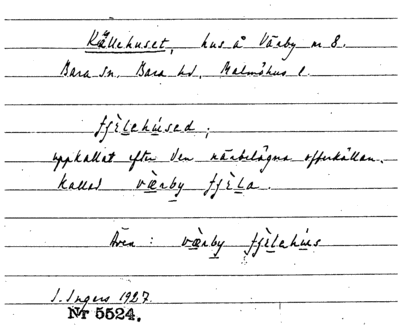 Källehuset, hus å Värby nr 8.
Bara sn. Bara hd. Malmöhus l.
fjèlehùsed;
uppkallat efter den närbelägna offerkällan.
kallad væ̀rby fjèla.
Även: væ̀rby fjèlehùs
I. Ingers 1927.
Nr 5524.